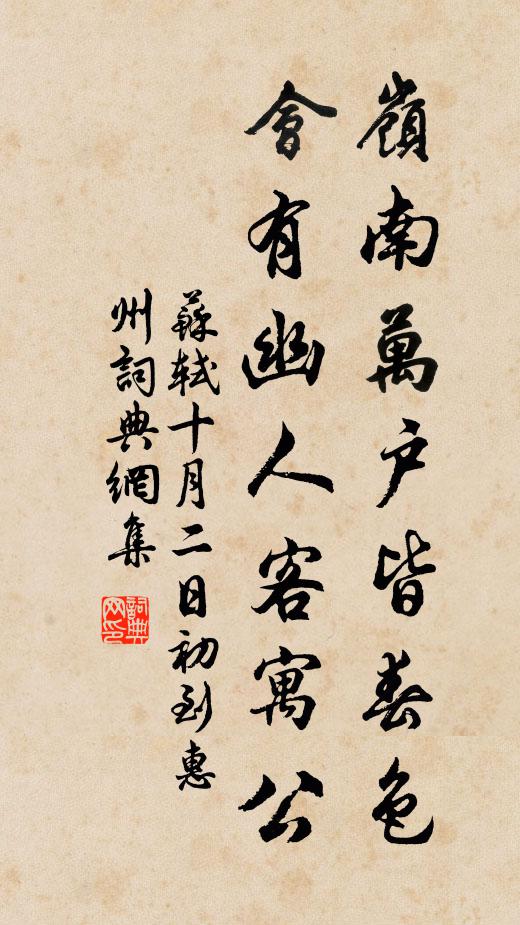 嶺南萬户皆春色
會有幽人客寓公
蘇軾十月二日初到惠
州詞典網集
詞典网印